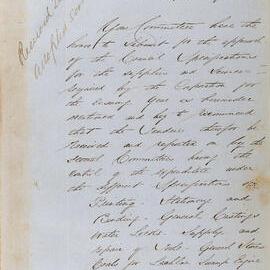 Your Committee have the
honor to Submit for the approval
of the Council Specifications
for the supplies and Services
required by the Corporation for
the Ensuing Year as hereunder
mentioned and beg to recommend
that the Tenders therefor be
received and reported on by the
Several Committees having the
control of the expenditure under
the different Specifications viz
Printing - Stationery and
Binding - General Castings
Water Supply and
repair of Tools - General Stores
Coals for